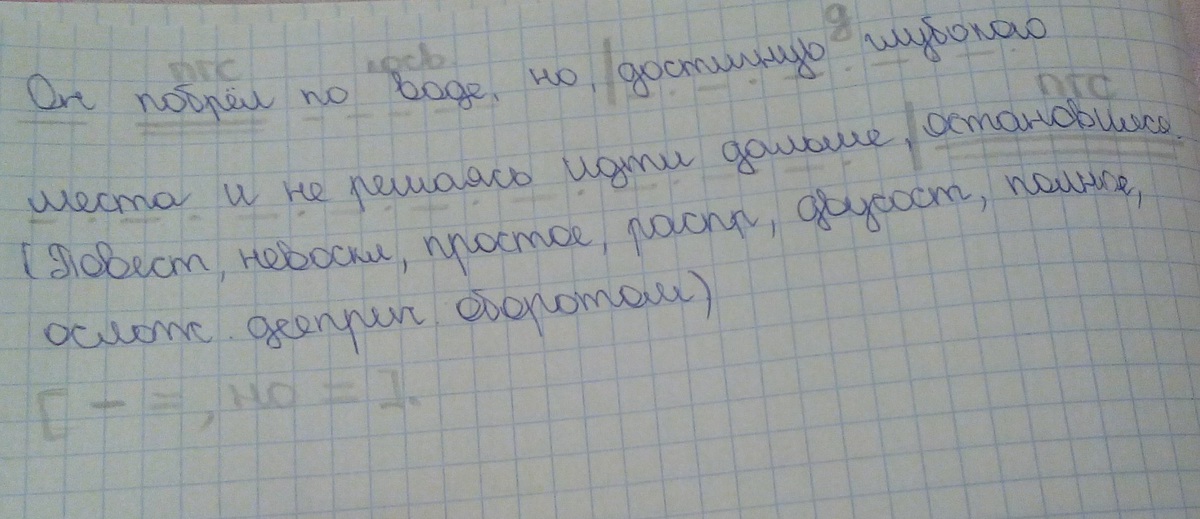 пгс косв д
Он побрёл по воде, но, достигнув глубокого
пгс
места и не решаясь идти дальше, остановился.
(Повест, невоскл, простое, распр, двусост, полное,
ослож. дееприч. оборотом)
[ – =, но = ].